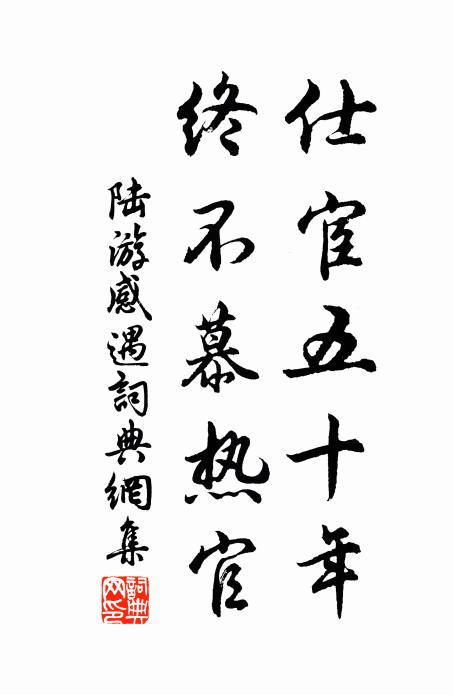 仕宦五十年
终不慕热官
陆游感遇詞典網集
詞典网印